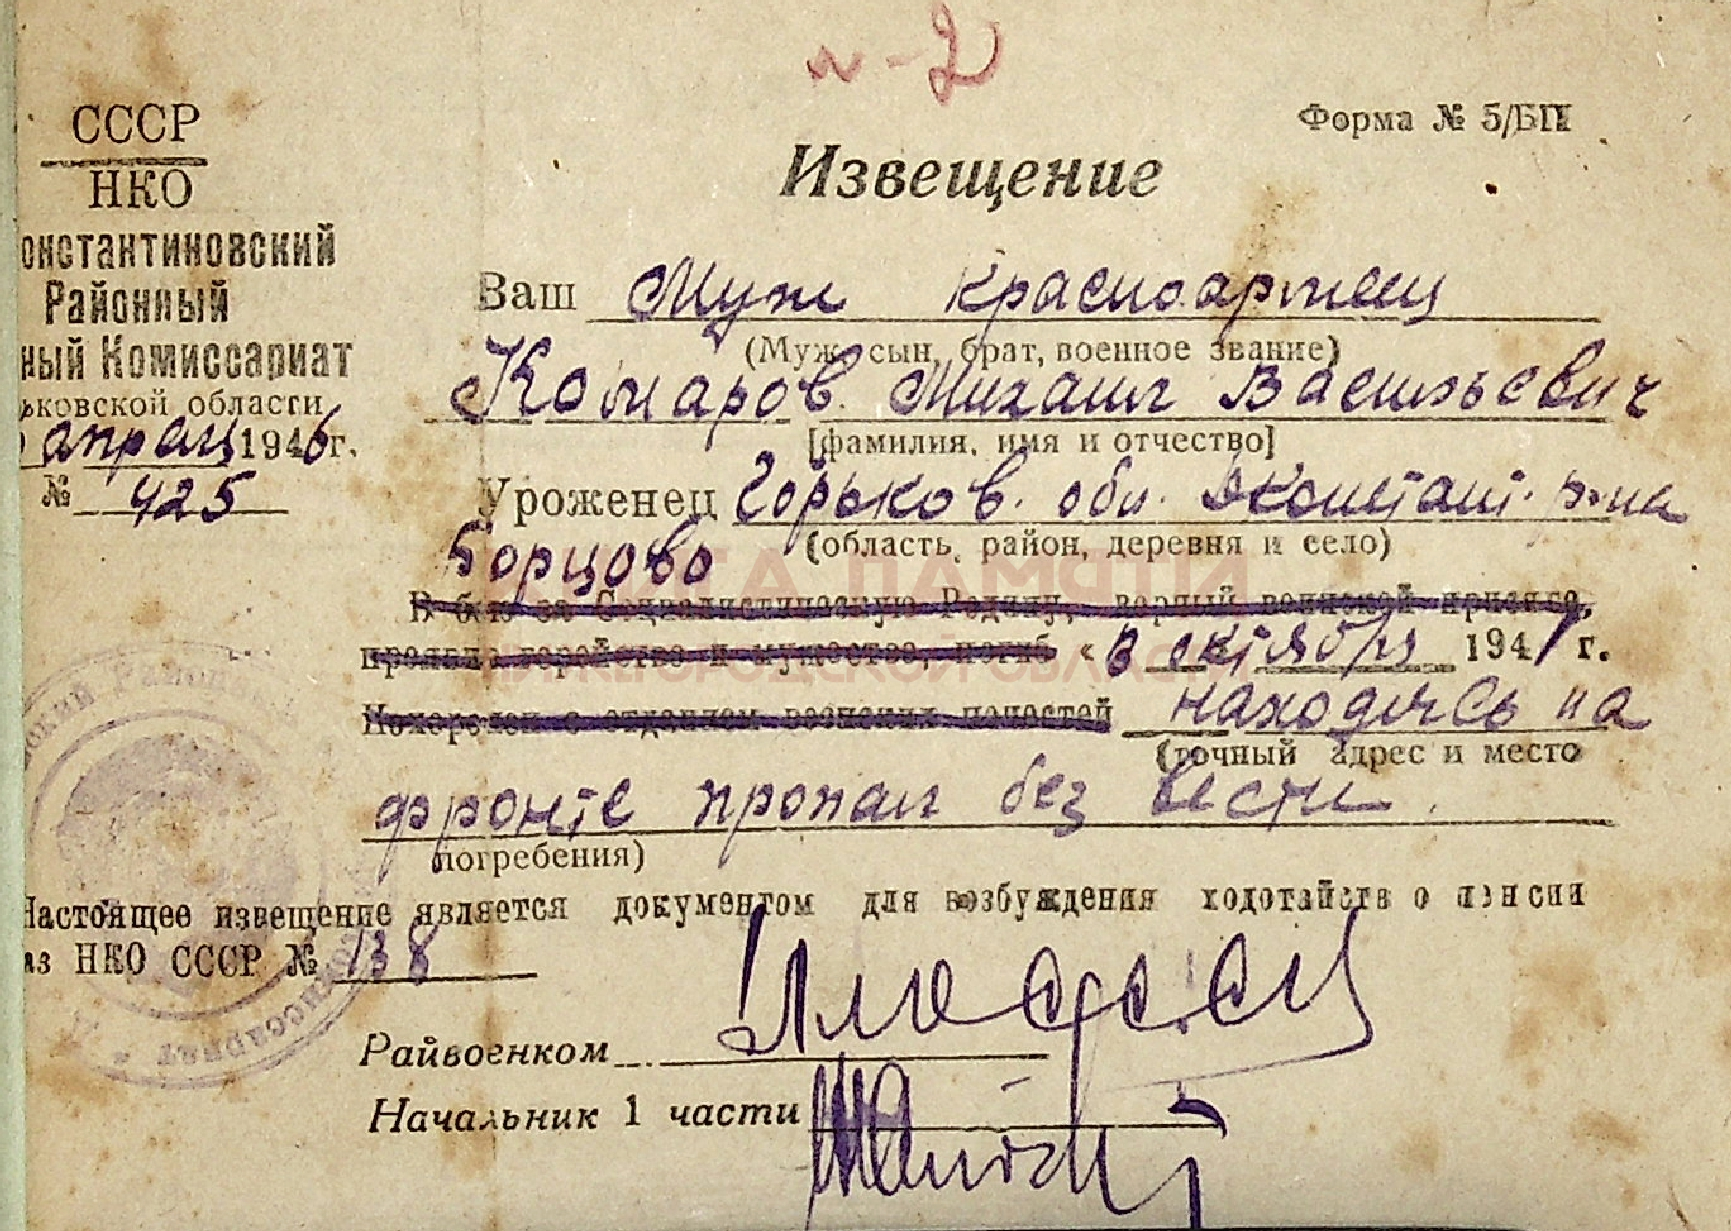 Форма № 5/БП
СССР
НКО
онстантиновский
Районный
ный Комиссариат
ьковской области
апрель 1946 г.
№ 425
Извещение
Ваш Муж красноармеец
(Муж, сын, брат, военное звание)
Комаров Михаил Васильевич
[фамилия, имя и отчество]
Уроженец Горьков. обл. Дконстант. р-на
(область, район, деревня и село)
Борцово
КНИГА ПАМЯТИ
НИЖЕГОРОДСКОЙ ОБЛАСТИ
В бою за Социалистическую Родину, верный воинской присяге,
проявив геройство и мужество, погиб « в октября 1941 г.
Похоронен с отданием воинских почестей находясь на
(точный адрес и место
фронте пропал без вести.
погребения)
Настоящее извещение является документом для возбуждения ходотайств о пенсии
аз НКО СССР № 138
Райвоенком
Начальник 1 части